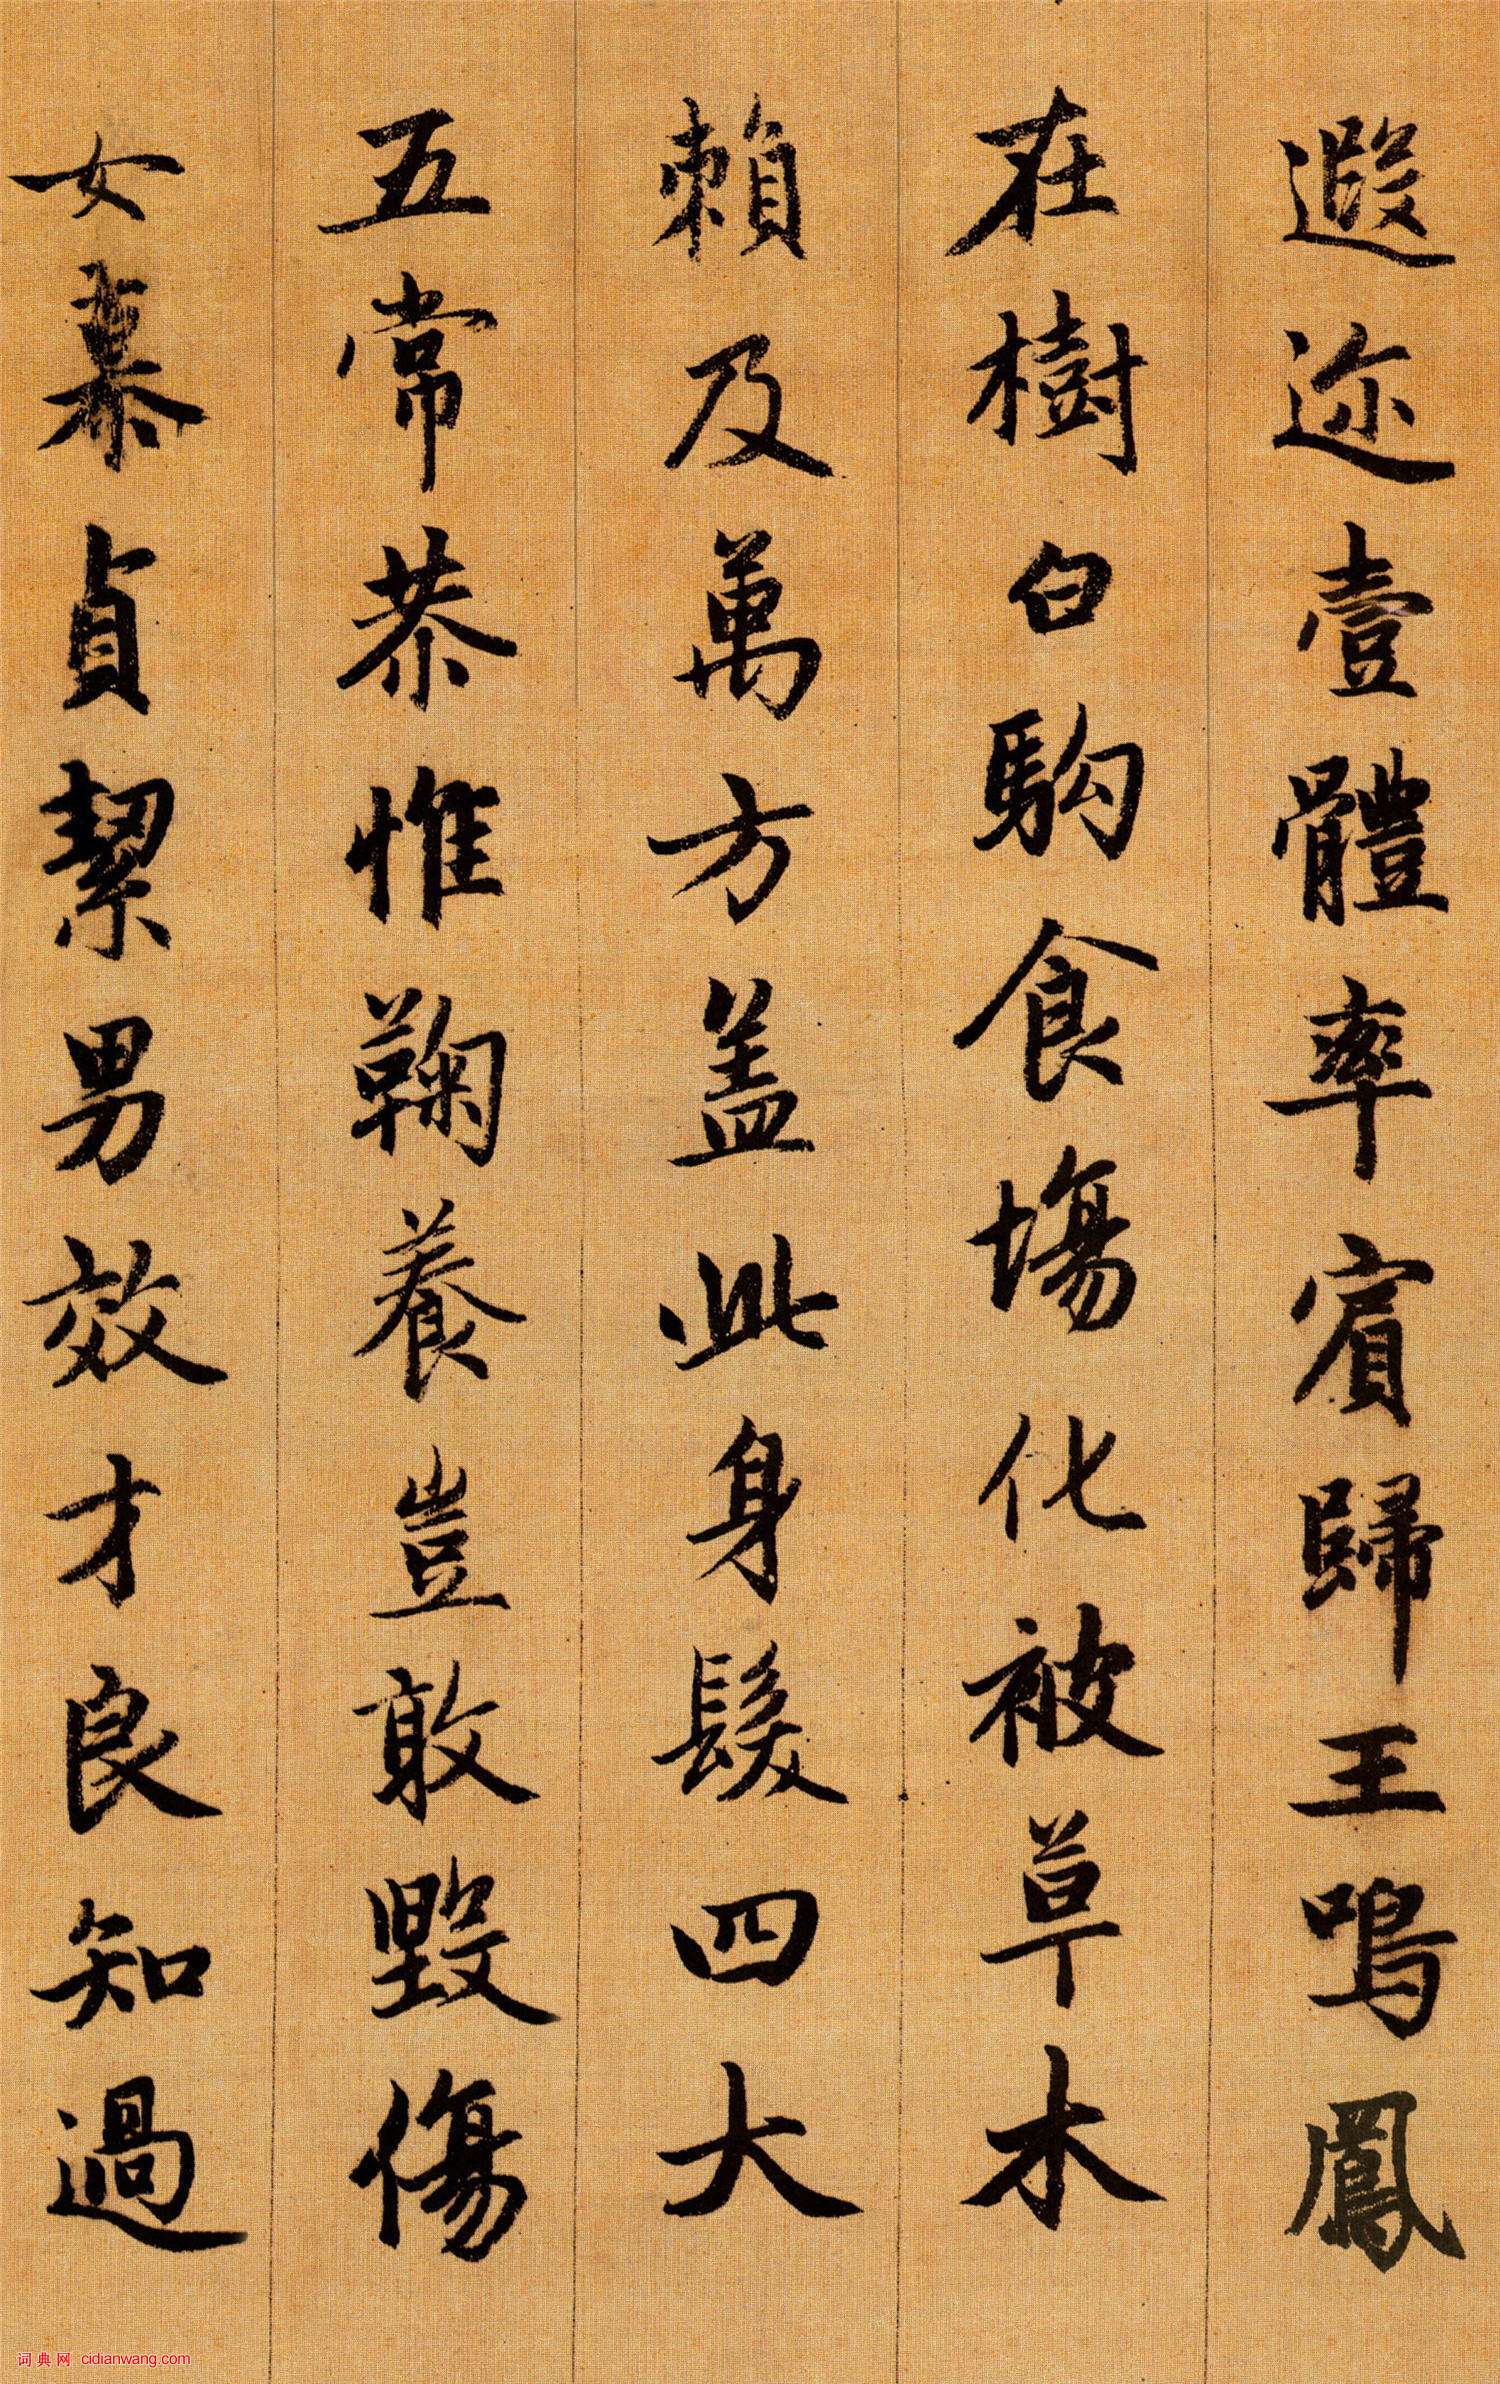 遐迩壹體率賓歸王鳴鳳
在樹白駒食場化被草木
賴及萬方盖此身髮四大
五常恭惟鞠養豈敢毀傷
女慕貞絜男效才良知過
词典网 cidianwang.com